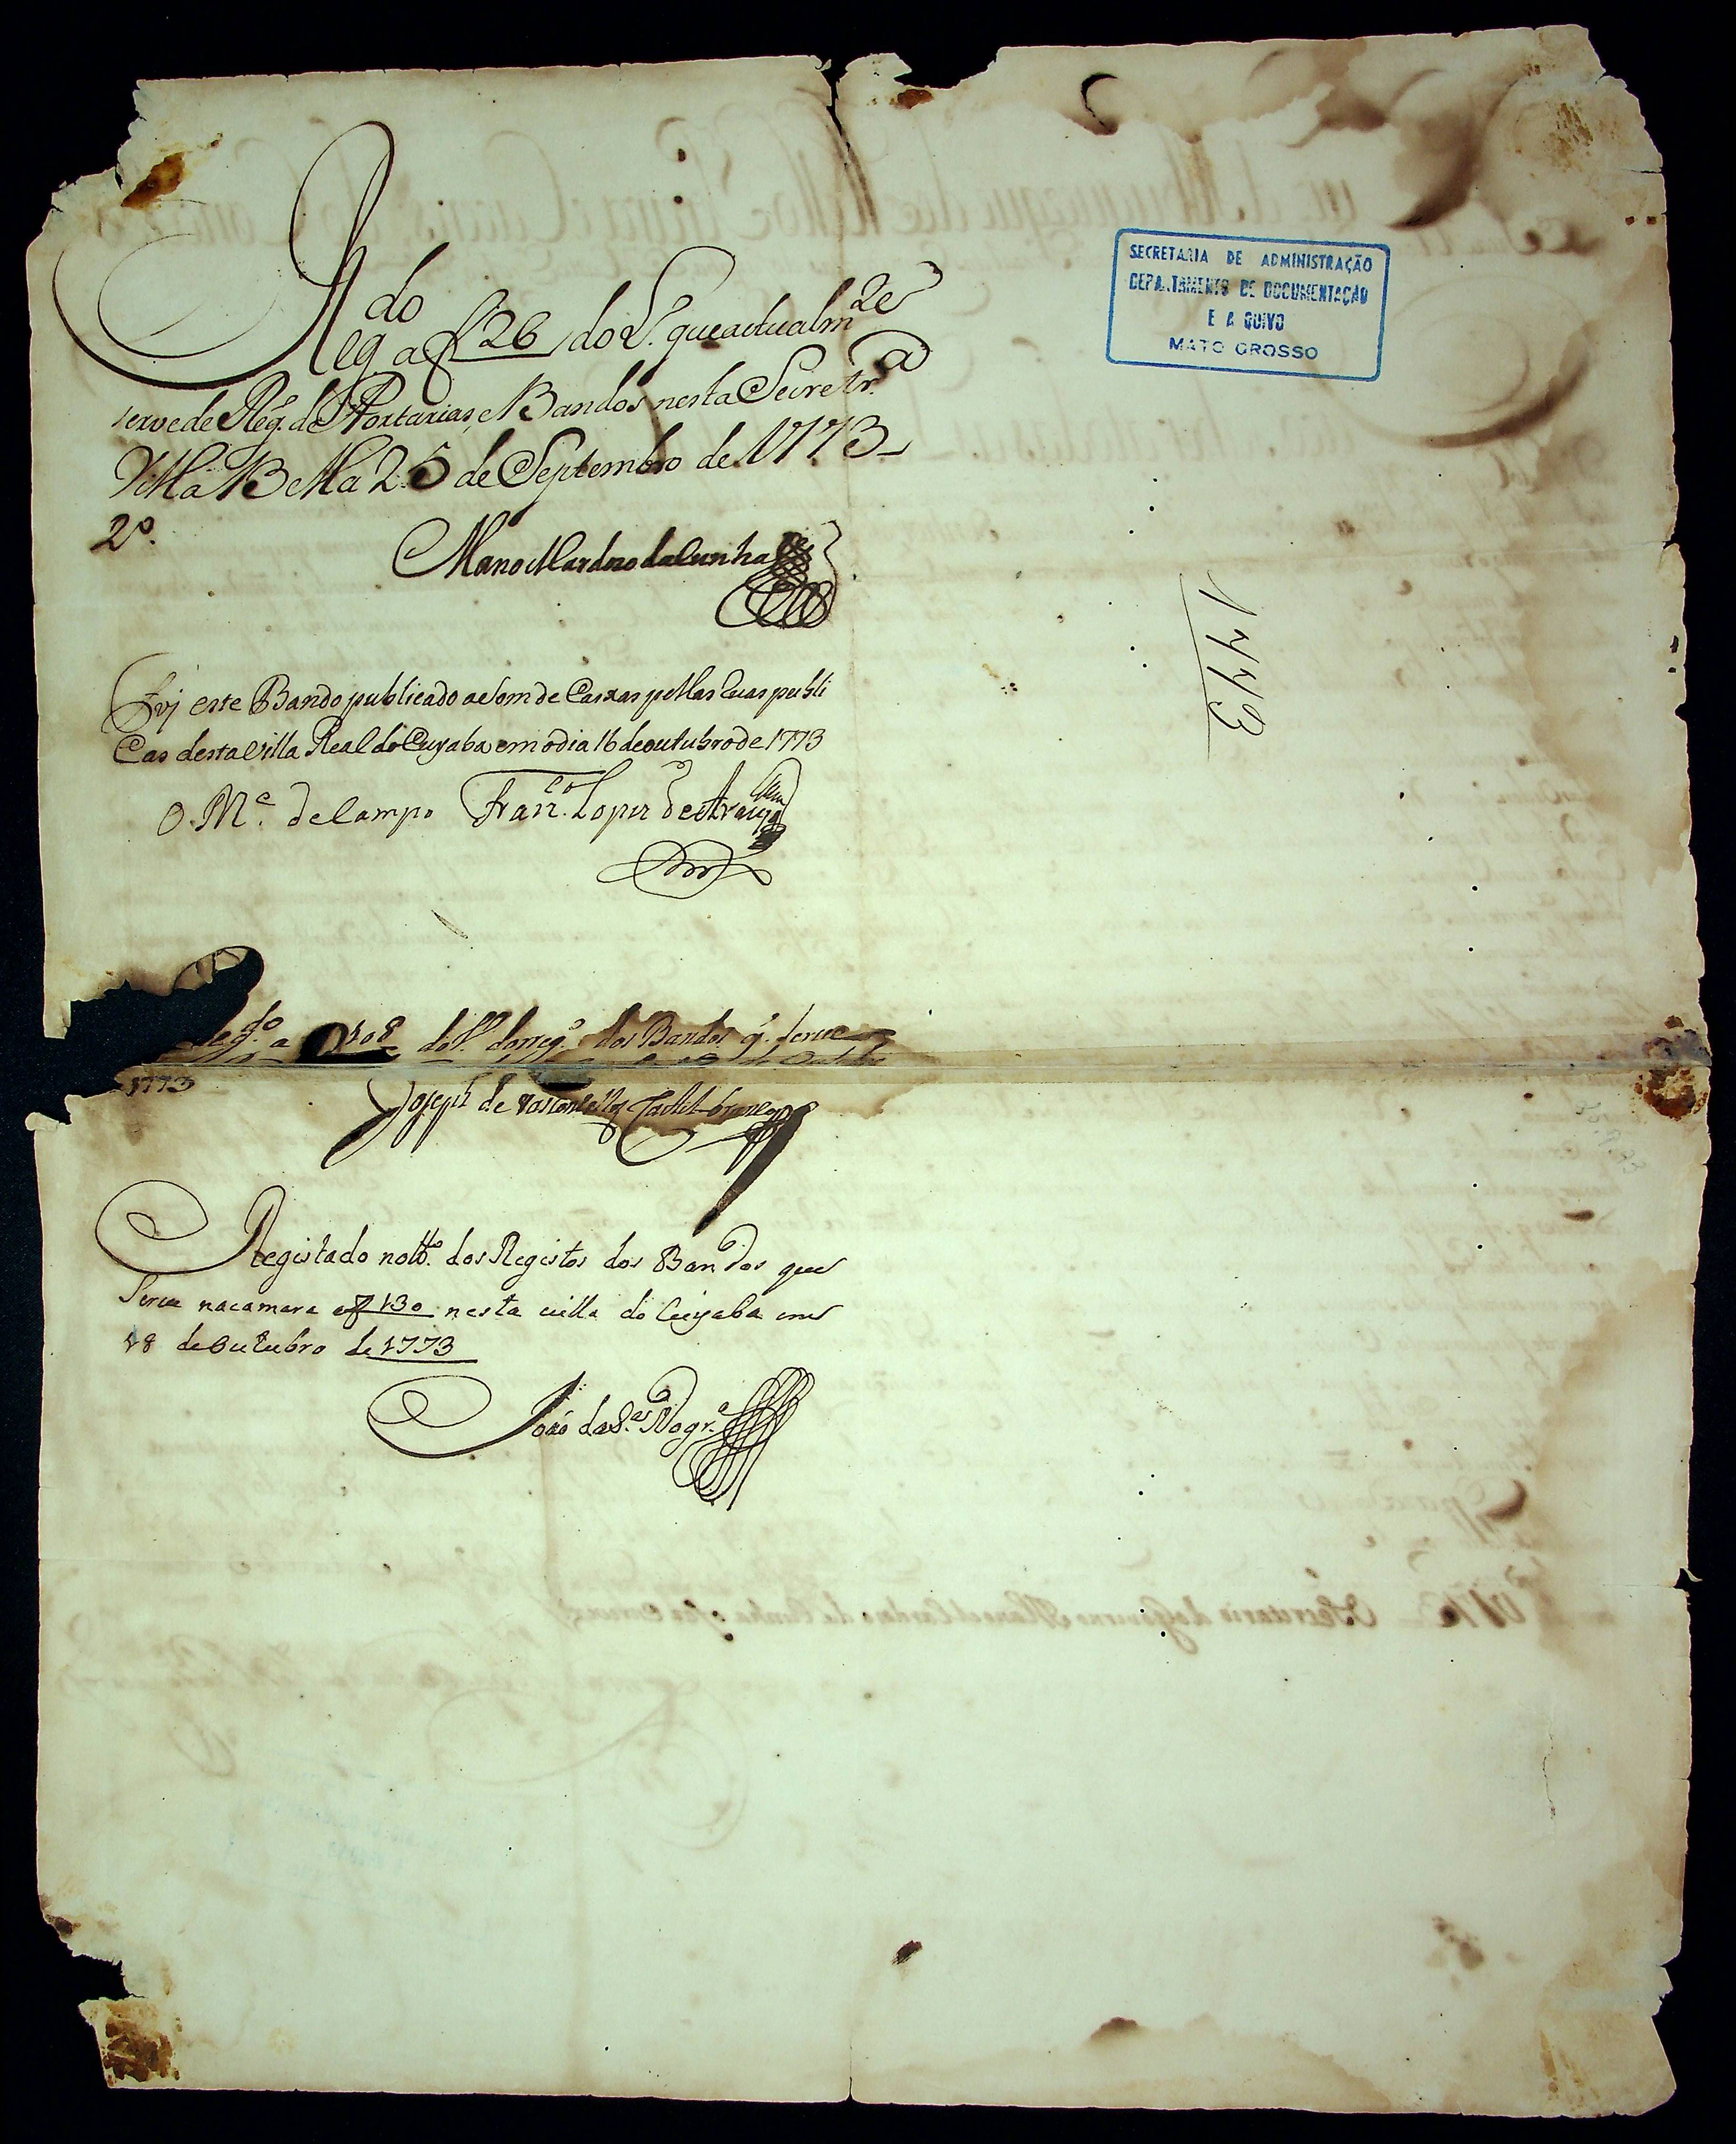 Reg.do a f 26 do L.º que actualm.te
serve de Reg.º de Portarias, e Bandos nesta Secretr.ª
Villa Bella 25 de Septembro de 1773
2º.
Manoel Cardozo da Cunha
Foj este Bando publicado a Som de Caixas pellas Ruas publi
Cas desta Villa Real do Cuyaba em o dia 16 de outubro de 1773
O. M.e de Campo Fran.co Lopes de Araujo
Reg.do a 108 do L.º do reg.º dos Bandos q. serve
1773
Joseph de Vasconcellos Castel branco
Registado no Lº. dos Registos dos Bandos que
Serve na camara a f 130 nesta villa do Cuyaba em
18 de Outubro de 1773
João da S.ª Nogr.ª
SECRETARIA DE ADMINISTRAÇÃO
DEPARTAMENTO DE DOCUMENTAÇÃO
E A QUIVO
MATO GROSSO
1773